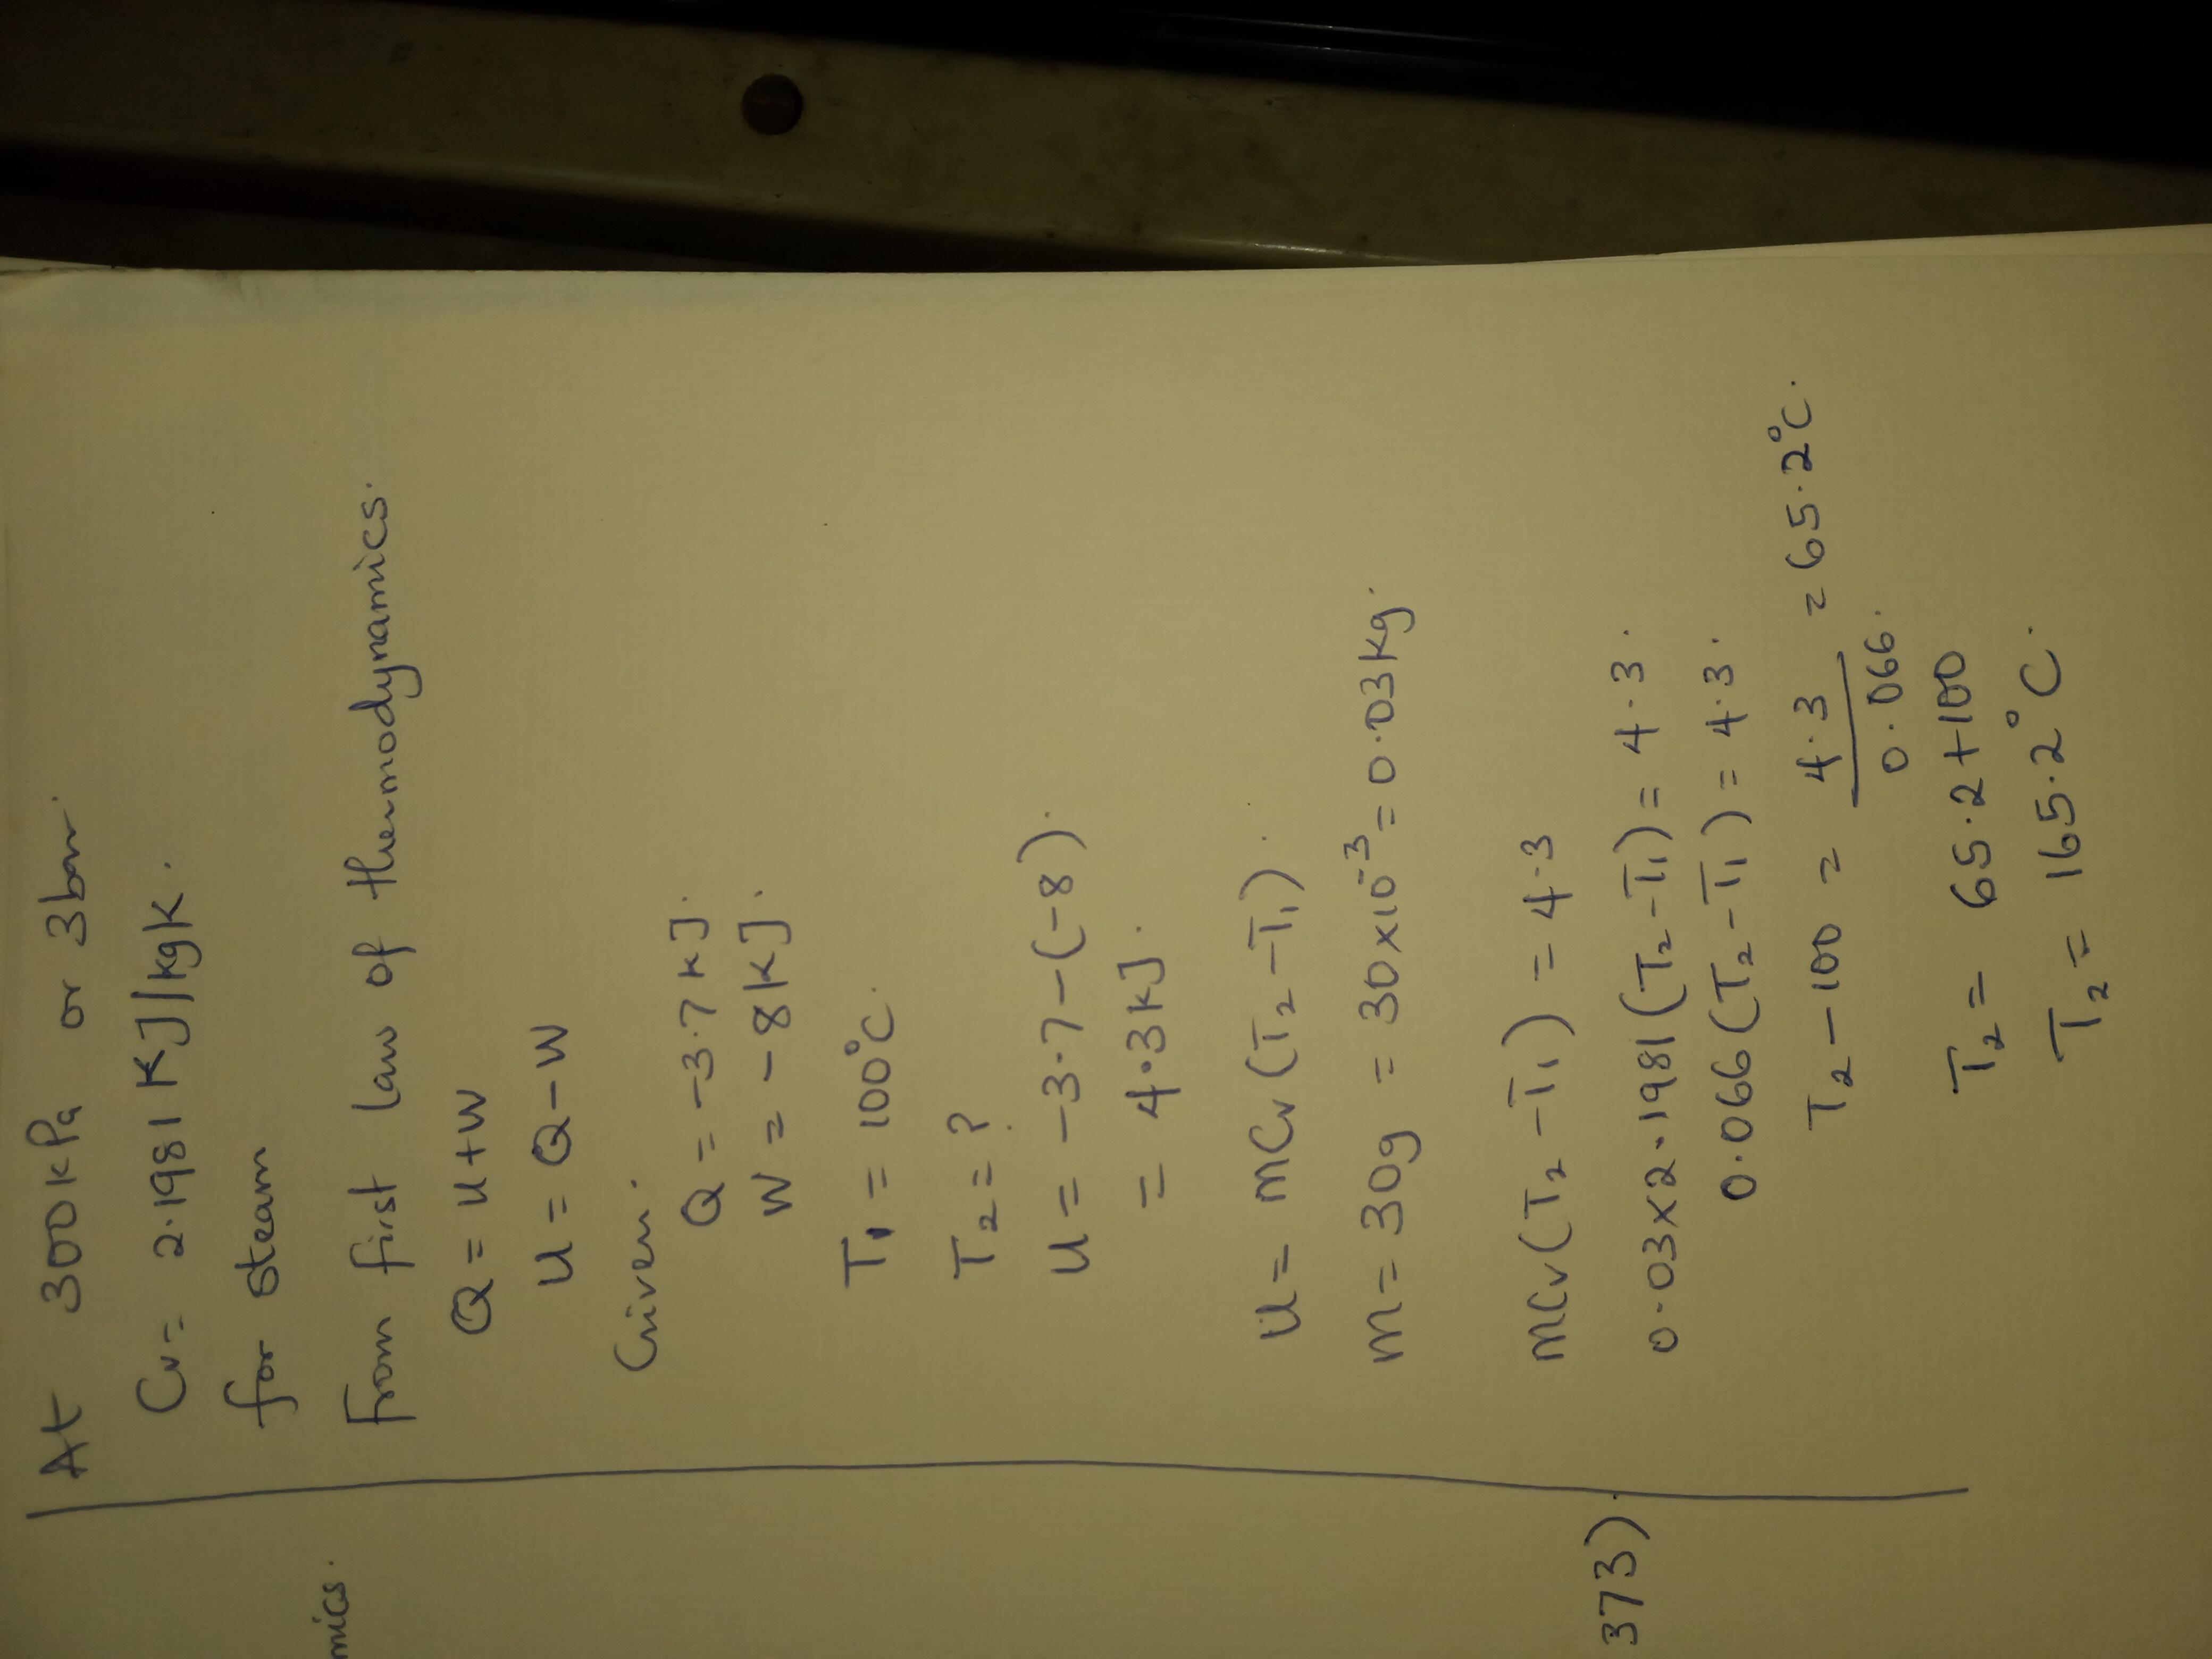 At 300kPa or 3bar.
Cv = 2.1981 KJ/kgK.
for steam
From first law of thermodynamics.
Q = u+W
U = Q-W
Given.
Q = -3.7 KJ.
W = -8KJ.
T1 = 100°C.
T2 = ?
U = -3.7-(-8).
= 4.3KJ.
U = mCv (T2-T1).
m = 30g = 30x10-3 = 0.03kg.
mCv(T2-T1) = 4.3
0.03x2.1981(T2-T1) = 4.3.
0.066(T2-T1) = 4.3.
T2-100 = 4.3 = 65.2°C.
0.066.
T2 = 65.2+100
T2 = 165.2°C.
mics.
373).